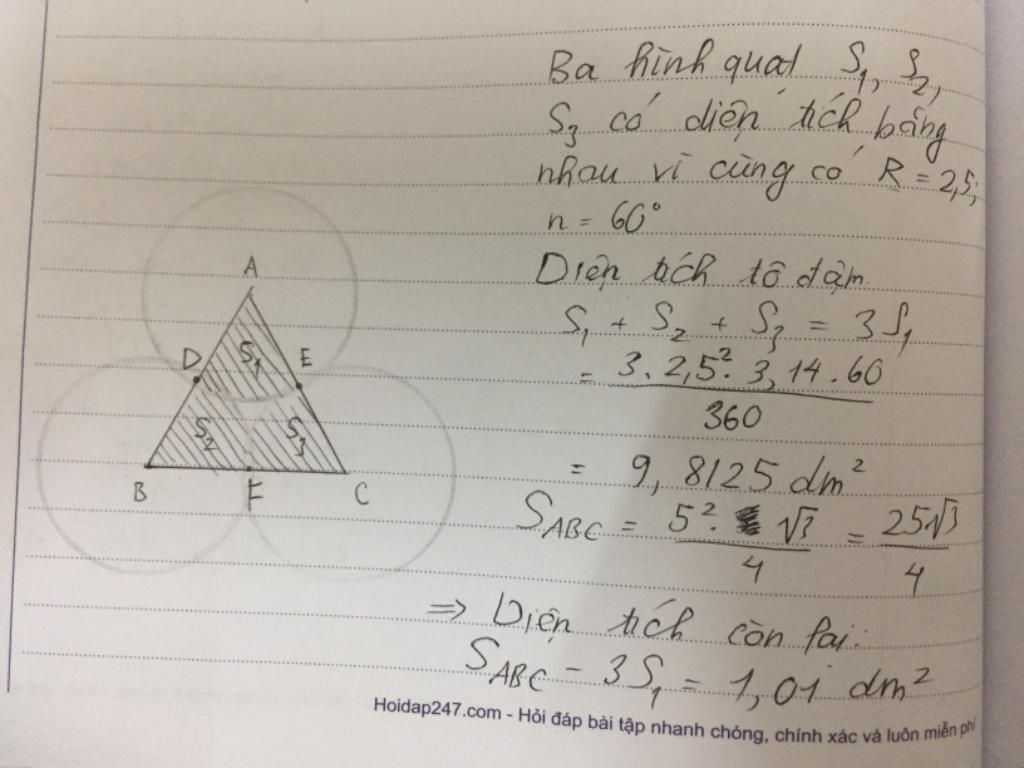 Ba hình quạt S₁, S₂,
S₃ có diện tích bằng
nhau vì cùng có R = 2,5;
n = 60°
Diện tích tô đậm
S₁ + S₂ + S₃ = 3S₁
= 3. 2,5². 3,14.60 / 360
= 9,8125 dm²
S_ABC = 5². √3 / 4 = 25√3 / 4
=> Diện tích còn lại:
S_ABC - 3S₁ = 1,01 dm²
A
D
S₁
E
S₂
S₃
B
F
C
Hoidap247.com - Hỏi đáp bài tập nhanh chóng, chính xác và luôn miễn phí